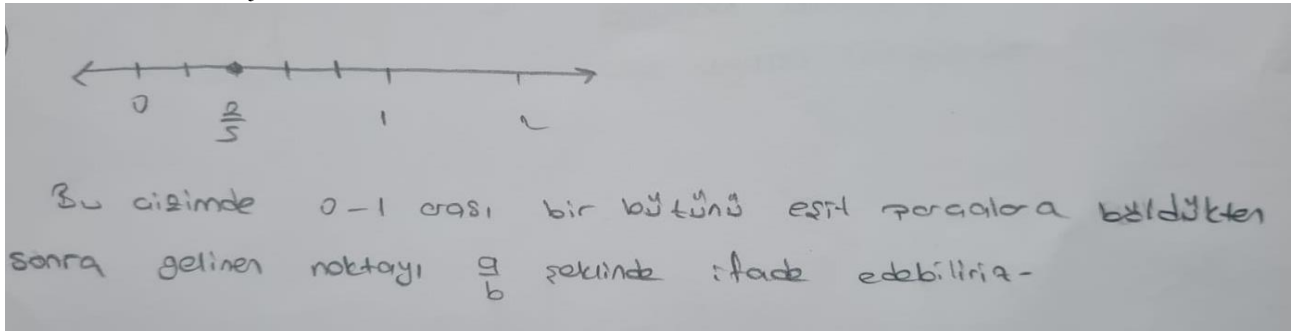 0 2/5 1 2
Bu çizimde 0-1 arası bir bütünü eşit parçalara böldükten
sonra gelinen noktayı a/b şeklinde ifade edebiliriz.